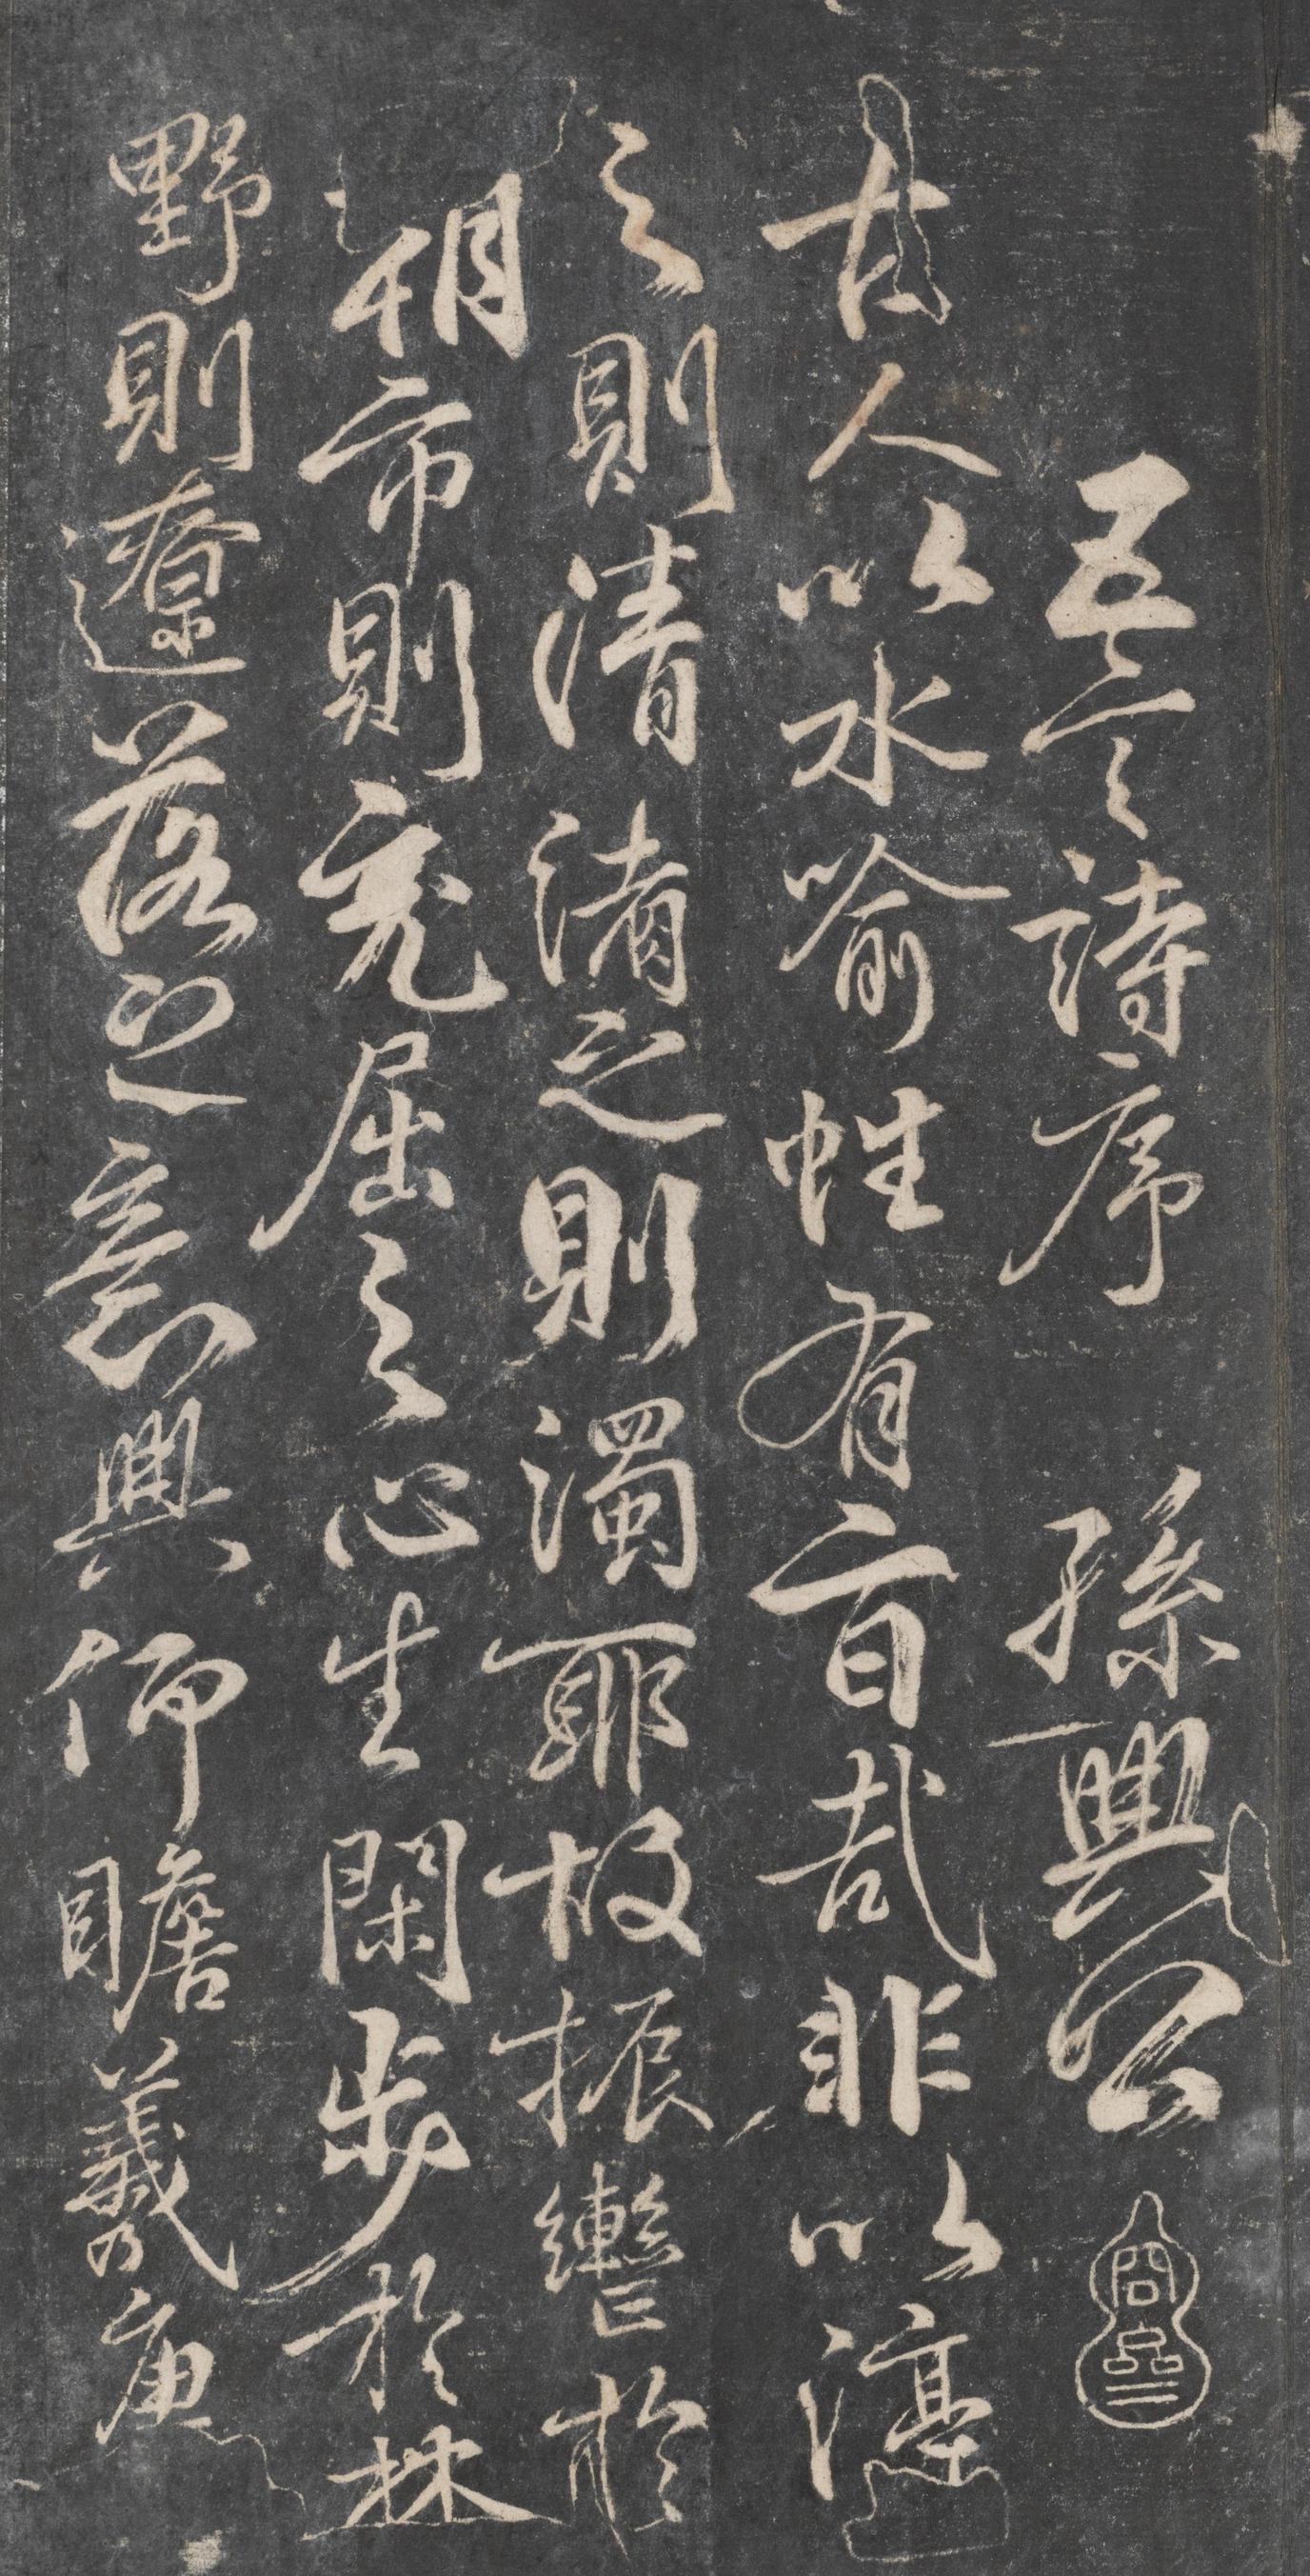 五言詩序 孫興公
古人以水喻性有旨哉非以渟
之則清渚之則濁耶故振轡於
朝市則充屈之心生閑步於林
野則遼落之意興仰瞻羲唐